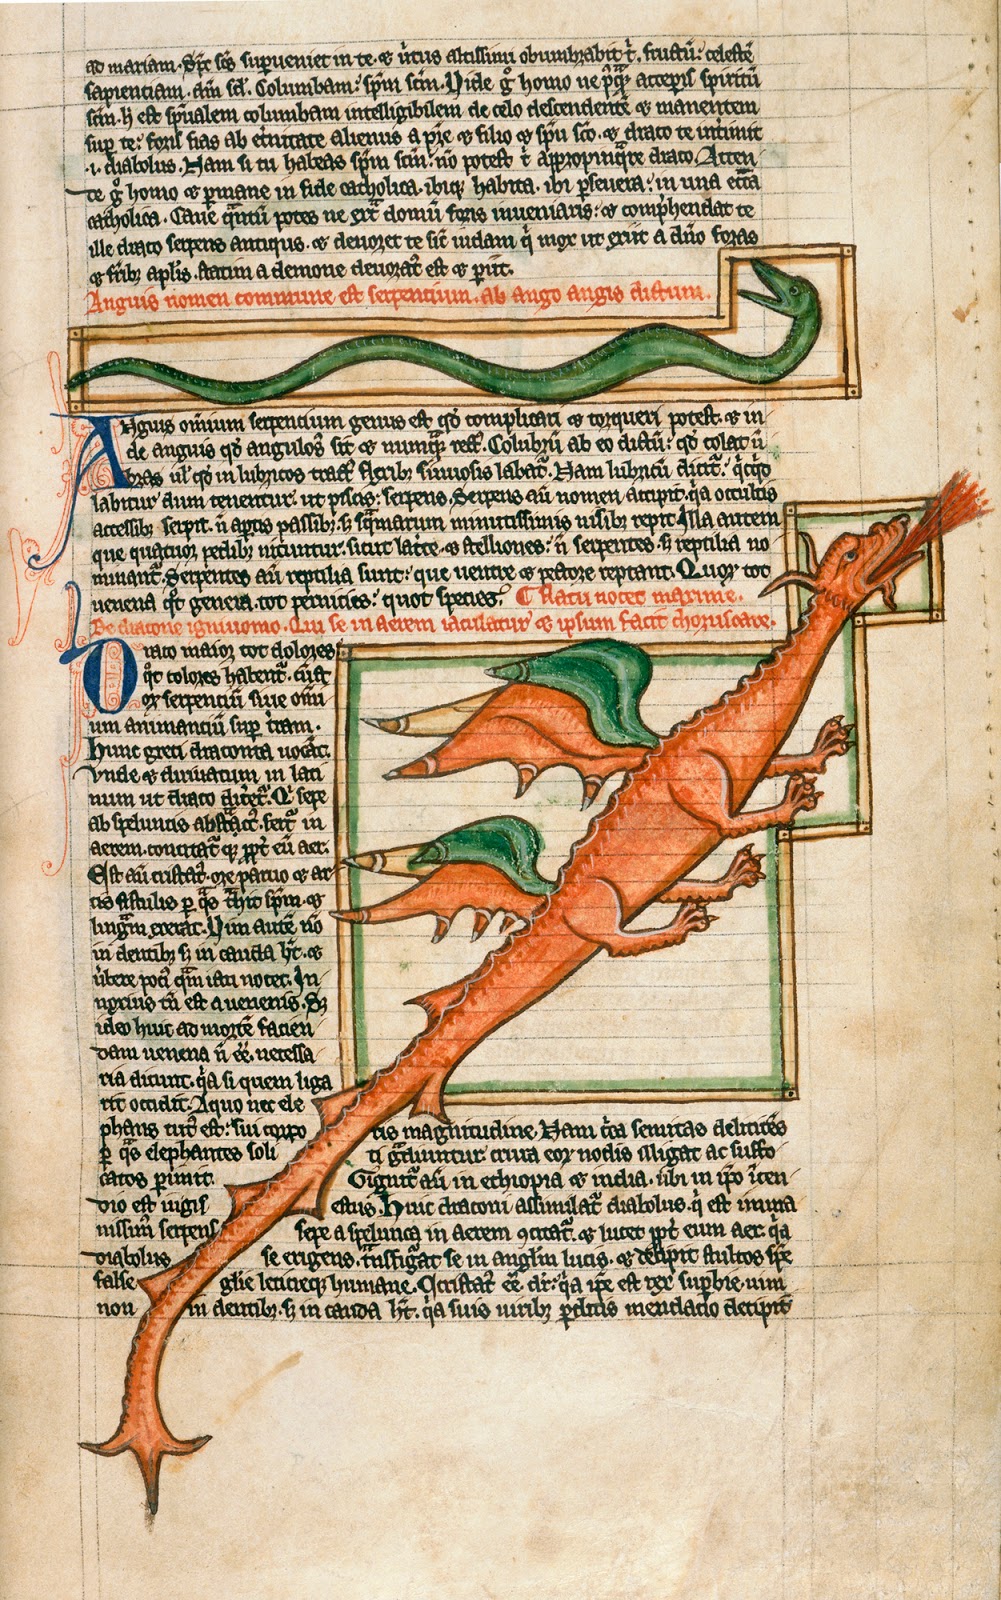 ad mariam. Spc scs superueniet in te. & uirtus altissimi obumbrabit t. fructu: celeste
sapientiam. dm sci. Columbam: spm scm. Vide g homo ne acceperis spiritu
scm. h est spualem columbam intelligibilem de celo descendente & manentem
sup te: foris fias ab eternitate alienus a pre & filio & spu sco. & draco te
.i. diabolus. Nam si tu habeas spm scm: no potest t appropinqre draco. Atten
te g homo & pmane in fide catholica. ibiq habita. ibi pseuera: in una eccla
catholica. Caue qntu potes ne ext domu foris inueniaris: & comphendat te
ille draco serpens antiqus. & deuoret te sic iudam q mox ut exiit a dno foras
& frib aplis. statim a demone deuorat est & piit.
Anguis nomen commune est serpentium. ab ango angis dictum.
Anguis omnium serpentium genus est qd complicari & torqueri potest. & in
de anguis qd angulos sit & numq rect. Colubru ab eo dictu: qd colat u
bras ul qd in lubricos tract flexib sinuosis labat. Nam lubricu dicit: qcqd
labitur dum tenentur. ut piscis: serpens. Serpens au nomen accipit. qa occultis
accessib serpit. n aptis passib. s squamarum minutissimis nisib repit. Illa autem
que quatuor pedib nituntur. sicut lacte. & stelliones: n serpentes. s reptilia no
minant. Serpentes au reptilia sunt: que uentre & pectore reptant. Quor tot
uenena qt genera. tot pernicies: quot species. Flatu nocet maxime.
De dracone igniuomo. Qui se in aerem iaculatur & ipsum facit choruscare.
Draco maior tot dolores
qt colores habent. cunct
or serpentiu siue omi
um animantiu sup tram.
Hunc greci draconta uocat.
Vnde & diriuatum in lati
num ut draco dicet. Q sepe
ab speluncis abstact. fert in
aerem. concitat q ppt eu aer.
Est au cristat. ore paruo & ar
tis fistulis p qs trhit spm. &
lingm exerat. Vim aute no
in dentib s in cauda ht. &
ubere poci qm ictu nocet. In
noxius tn est a uenenis. S
ideo huic ad morte facien
dam uenena n ee. necessa
ria dicunt. qa si quem liga
rit occidit. A quo nec ele
phans tut est: sui corpo ris magnitudine. Nam cca semitas delitsces
p qs elephantes soli ti gdiuntur crura eor nodis illigat ac suffo
catos perimit. Gignit au in ethiopia & india. ubi in ipo icen
dio est iugis estus. Huic draconi assimilat diabolus. q est inma
nissim serpens sepe a spelunca in aerem qcitat. & lucet ppt eum aer. qa
diabolus se erigens. tnsfigat se in anglm lucis. & decipit stultos spe
false glie leticieq humane. Qcristat ee dr: qa ipe est rex superbie. uim
non in dentib. s in cauda ht. qa suis uirib pditis mendacio decipit